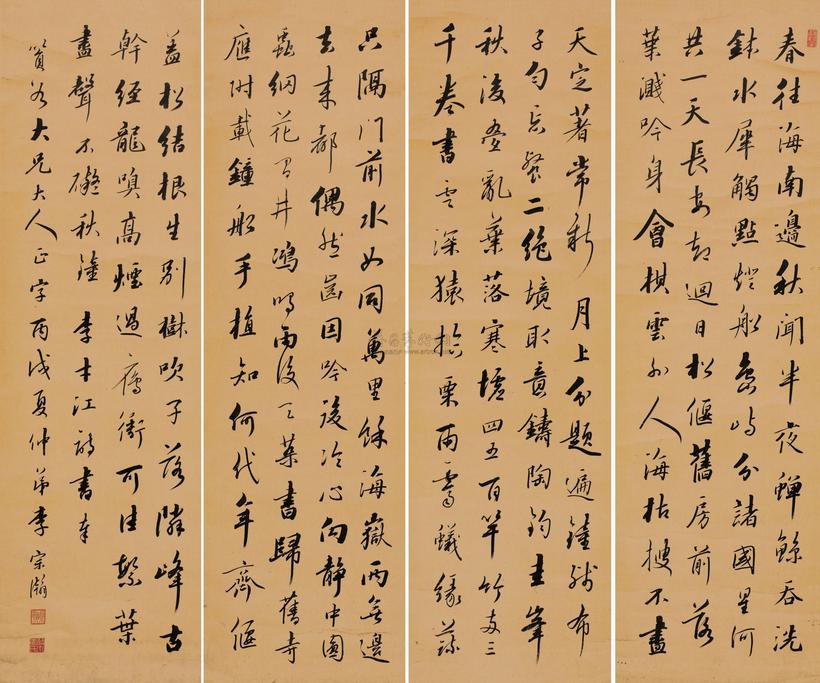 春往海南邊秋聞半夜蟬鯨吞洗
鉢水犀觸點燈船島嶼分諸國星河
共一天長安却迴日松偃舊房前落
葉濺吟身會棋雲外人海枯搜不盡
天定著常新月上分題遍鐘殘布
子勻忘餐二絕境取意鑄陶鈞圭峯
秋後疊亂葉落寒墟四五百竿竹兩三
千卷書雲深猿拾栗雨霽蟻緣蔬
只隔門前水如同萬里餘海嶽兩無邊
去來都偶然齒因吟後冷心向靜中圓
蟲網花間井鴻鳴雨後天葉書歸舊寺
應附載鐘船手植知何代年齊偃
蓋松結根生別樹吹子落隣峰古
幹經龍嗅高煙過雁衝可佳繁葉
盡聲不礙秋鐘李才江詩書奉
篔谷大兄大人正字丙戌夏仲弟李宗瀚